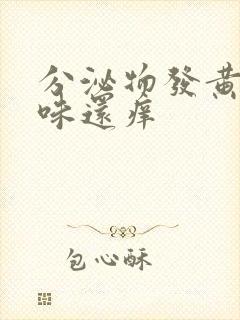 分泌物發黃
味還痒
包心酥